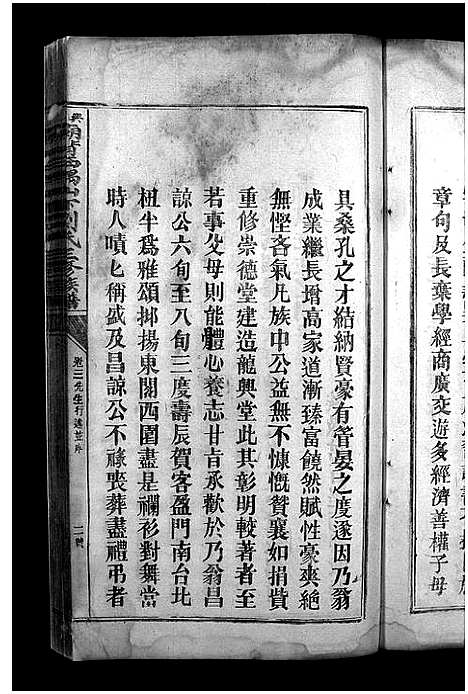 章句及長棄學經商廣交遊多經濟善權子母
具桑孔之才結納賢豪有管晏之度遂因乃翁
成業繼長增高家道漸臻富饒然賦性豪爽絕
無慳吝氣凡族中公益無不慷慨贊襄如捐貲
重修崇德堂建造龍興堂此其彰明較著者至
若事父母則能體心養志甘旨承歡於乃翁昌
諒公六旬至八旬三度壽辰賀客盈門南台北
杻半為雅頌揶揚東閣西園盡是襴衫對舞當
時人嘖匕稱盛及昌諒公不祿喪葬盡禮弔者
劉氏三修族譜
先生行述並序
二號